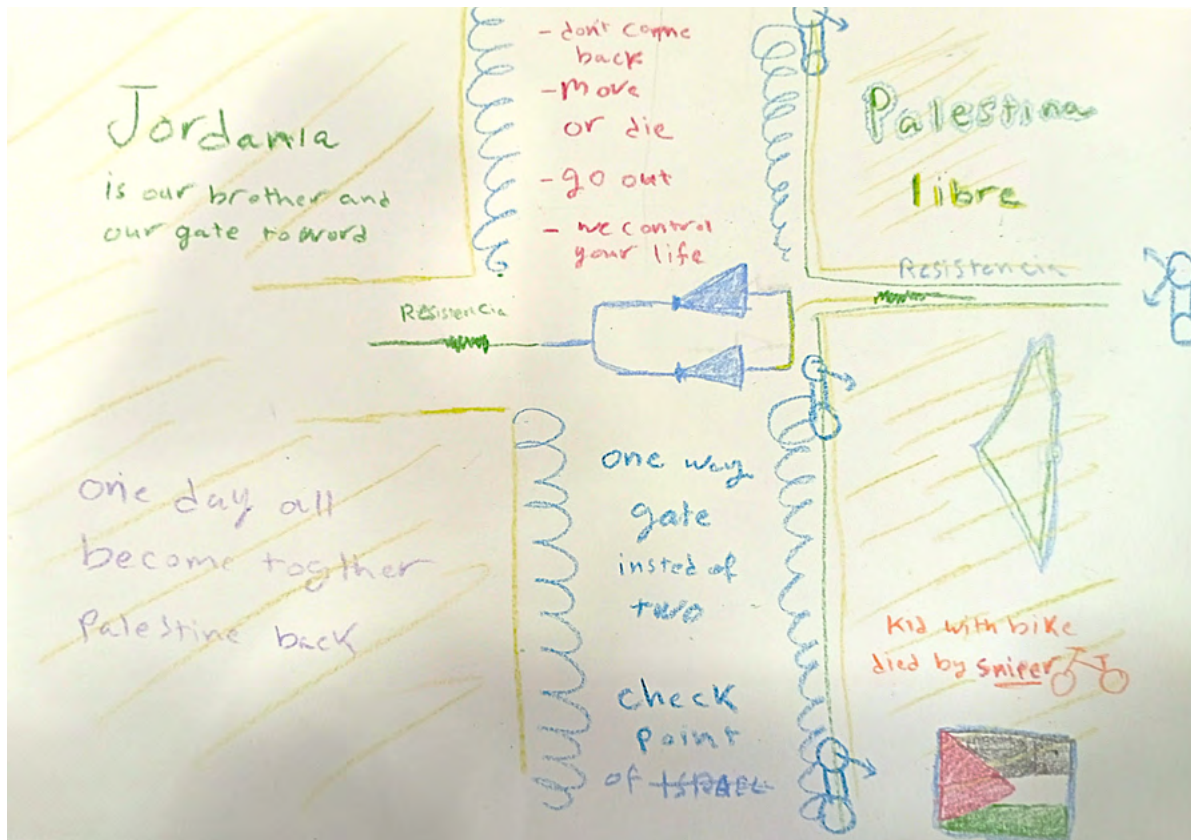 Jordania
is our brother and
our gate to word
- don't come
back
- Move
or die
- go out
- we control
your life
Palestina
libre
Resistencia
Resistencia
one day all
become togther
Palestine back
one way
gate
insted of
two
check
point
of ISRAEL
Kid with bike
died by sniper